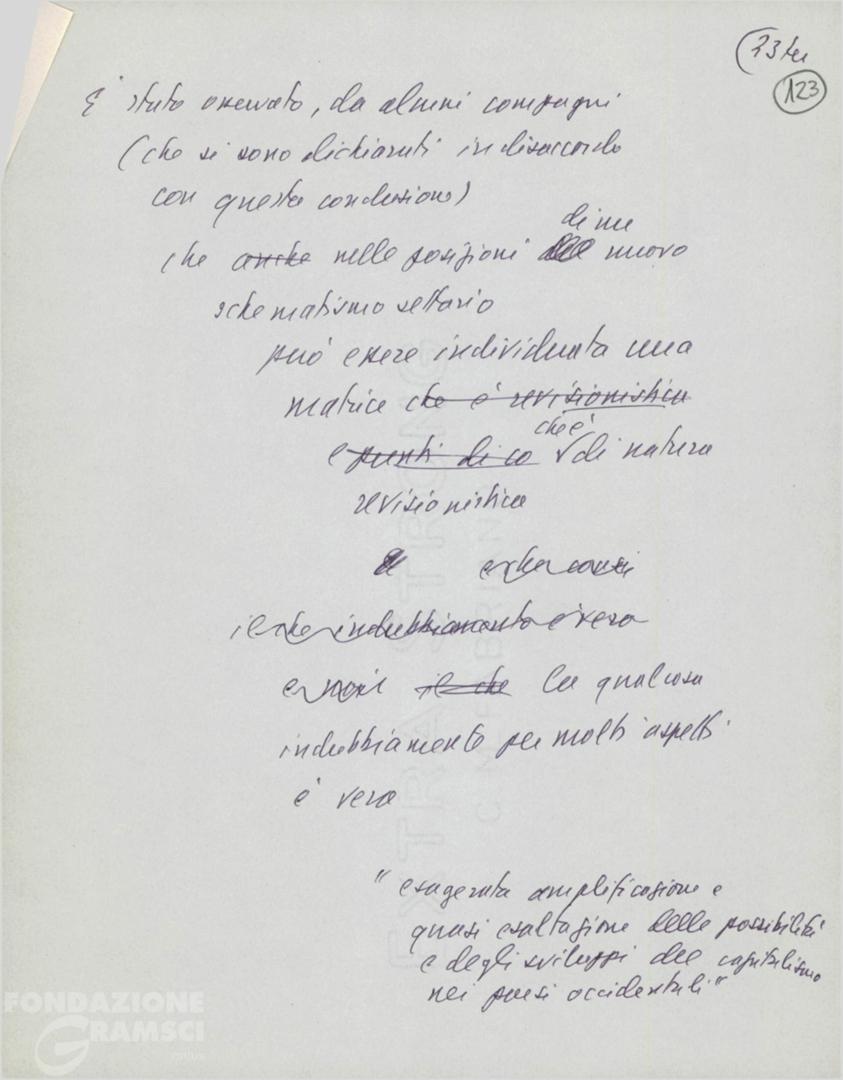 (23 ter
123
E' stato osservato, da alcuni compagni
(che si sono dichiarati in disaccordo
con questa conclusione)
di un
che anche nelle posizioni nuovo
schematismo settario
può essere individuata una
matrice che è revisionistica
che è
e punti di co di natura
revisionistica
e che
il che indubbiamente è vero
e il che la qual cosa
indubbiamente per molti aspetti
è vera
"esagerata amplificazione e
quasi esaltazione delle possibilità
e degli sviluppi del capitalismo
nei paesi occidentali"
EXTRA STRONG
FONDAZIONE
GRAMSCI